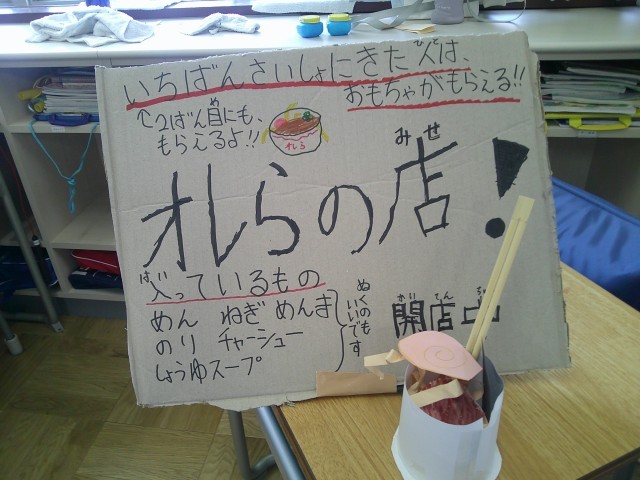 いちばんさいしょにきた人は、
おもちゃがもらえる!!
2ばん目にも、
もらえるよ!!
オレら
みせ
オレらの店!
はい
入っているもの
めん ねぎ めんま
のり チャーシュー
しょうゆスープ
ぬくのも
いいです
かい てん
開店中